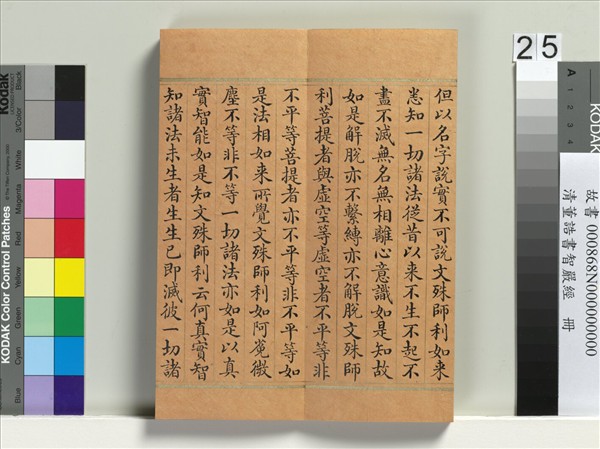 但以名字說實不可說文殊師利如來
悉知一切諸法從昔以來不生不起不
盡不滅無名無相離心意識如是知故
如是解脫亦不繫縛亦不解脫文殊師
利菩提者與虛空等虛空者不平等非
不平等菩提者亦不平等非不平等如
是法相如來所覺文殊師利如阿㝹微
塵不等非不等一切諸法亦如是以真
實智能如是知文殊師利云何真實智
知諸法未生者生生已即滅彼一切諸
25
故書 000868N000000000
清董誥書智嚴經 冊
KODAK Color Control Patches
Kodak
Black
3/Color
White
Magenta
Red
Yellow
Green
Cyan
Blue
A
1
2
3
4
KODAK